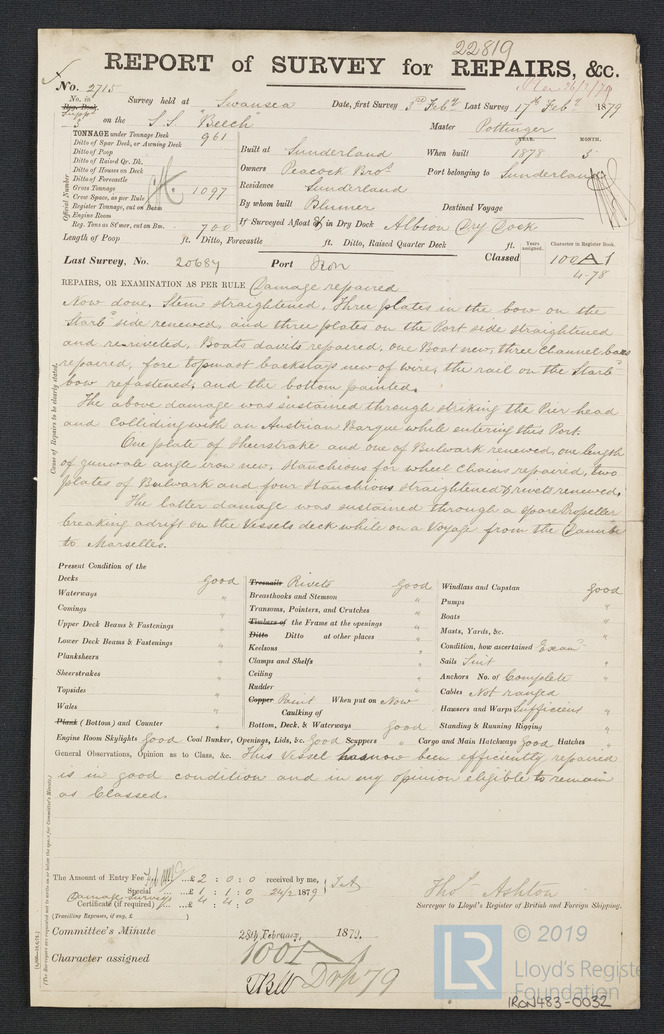 22819
REPORT of SURVEY for REPAIRS, &c.
No. 2715
No. in Reg. Book Survey held at Swansea Date, first Survey 3rd Feby Last Survey 17th Feby 1879
Supp 3 on the S.S. "Beech" Master Pottinger
TONNAGE under Tonnage Deck 961
Ditto of Spar Deck, or Awning Deck
Ditto of Poop
Ditto of Raised Qr. Dk.
Ditto of Houses on Deck
Ditto of Forecastle
Gross Tonnage 1097
Crew Space, as per Rule
Register Tonnage, cut on Beam
Engine Room
Reg. Tons as St'mer, cut on Bm. 700
Official Number
YEAR. MONTH.
Built at Sunderland When built 1878 3
Owners Peacock Bros. Port belonging to Sunderland
Residence Sunderland
By whom built Blumer Destined Voyage
If Surveyed Afloat or in Dry Dock Albion Dry Dock
Length of Poop ft. Ditto, Forecastle ft. Ditto, Raised Quarter Deck ft.
Years assigned. Character in Register Book.
Last Survey, No. 20684 Port Iron Classed 100 A 1
4-78
REPAIRS, OR EXAMINATION AS PER RULE Damage repaired
Now done, Stem straightened, Three plates in the bow on the
Starbd side renewed, and three plates on the Port side straightened
and re-riveted, Boats davits repaired, one Boat new, three Channel bars
repaired, fore topmast backstays new of wire, the rail on the Starbd
bow refastened, and the bottom painted.
The above damage was sustained through striking the Pier head
and Colliding with an Austrian Barque while entering this Port.
One plate of Sheerstrake and one of Bulwark renewed, one length
of gunwale angle iron new, Stanchions for wheel Chains repaired, two
plates of Bulwark and four Stanchions straightened & rivets renewed,
The latter damage was sustained through a Spare Propeller
breaking adrift on the Vessels deck while on a Voyage from the Danube
to Marselles.
Cause of Repairs to be clearly stated.
Present Condition of the
Decks Good
Waterways "
Comings "
Upper Deck Beams & Fastenings "
Lower Deck Beams & Fastenings "
Planksheers "
Sheerstrakes "
Topsides "
Wales "
Plank (Bottom) and Counter "
Treenails Rivets Good
Breasthooks and Stemson "
Transoms, Pointers, and Crutches "
Timbers of the Frame at the openings "
Ditto Ditto at other places "
Keelsons "
Clamps and Shelfs "
Ceiling "
Rudder "
Copper Paint When put on Now
Caulking of
Bottom, Deck, & Waterways Good
Windlass and Capstan Good
Pumps "
Boats "
Masts, Yards, &c. "
Condition, how ascertained Exam
Sails Suit "
Anchors No. of Complete "
Cables Not ranged
Hawsers and Warps Sufficient "
Standing & Running Rigging "
Engine Room Skylights Good Coal Bunker, Openings, Lids, &c. Good Scuppers " Cargo and Main Hatchways Good Hatches "
General Observations, Opinion as to Class, &c. This Vessel has now been efficiently repaired
is in good condition and in my opinion eligible to remain
as Classed.
The Amount of Entry Fee ...£ 2 : 0 : 0 received by me,
Special ...£ 1 : 1 : 0 24/2 1879 T.A
Damage Survey
Certificate (if required) ...£ 4 : 4 : 0
(Travelling Expenses, if any, £ )
Thos. Ashton
Surveyor to Lloyd's Register of British and Foreign Shipping.
Committee's Minute 28th February, 1879.
Character assigned 100 A 1
(The Surveyors are requested not to write on or below the space for Committee's Minute.)
© 2019
LR
Lloyd's Registe
Foundation
IRON483-0032